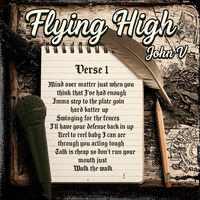 Flying High
John V
Verse 1
Mind over matter just when you
think that I've had enough
Imma step to the plate goin
hard batter up
Swinging for the fences
I'll have your defense back in up
Reel to reel baby I can see
through you acting tough
Talk is cheap so don't run your
mouth just
Walk the walk